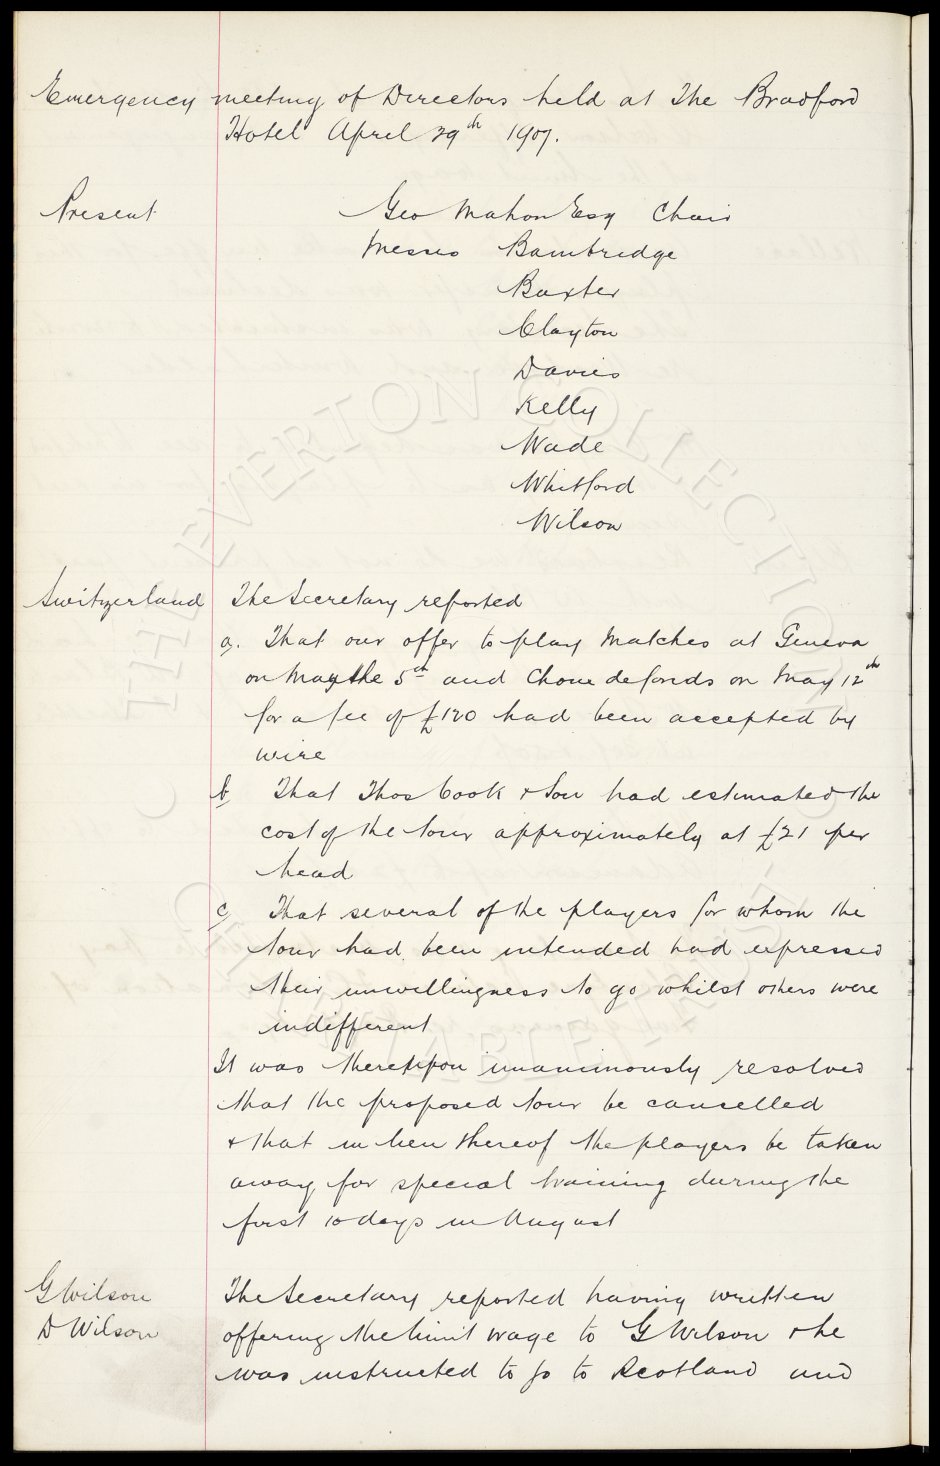 Emergency meeting of Directors held at The Bradford
Hotel April 29th 1907.
Present Geo Mahon Esq Chair
Messrs Bambridge
Baxter
Clayton
Davies
Kelly
Wade
Whitford
Wilson
Switzerland The Secretary reported
a. That our offer to play matches at Geneva
on May the 5th and Chaux de fonds on May 12th
for a fee of £120 had been accepted by
wire
b That Thos Cook & Son had estimated the
cost of the tour approximately at £21 per
head
c That several of the players for whom the
tour had been intended had expressed
their unwillingness to go whilst others were
indifferent
It was thereupon unanimously resolved
that the proposed tour be cancelled
& that in lieu thereof the players be taken
away for special training during the
first 10 days in August
G Wilson The Secretary reported having written
D Wilson offering the limit wage to G Wilson & he
was instructed to go to Scotland and
THE EVERTON COLLECTION